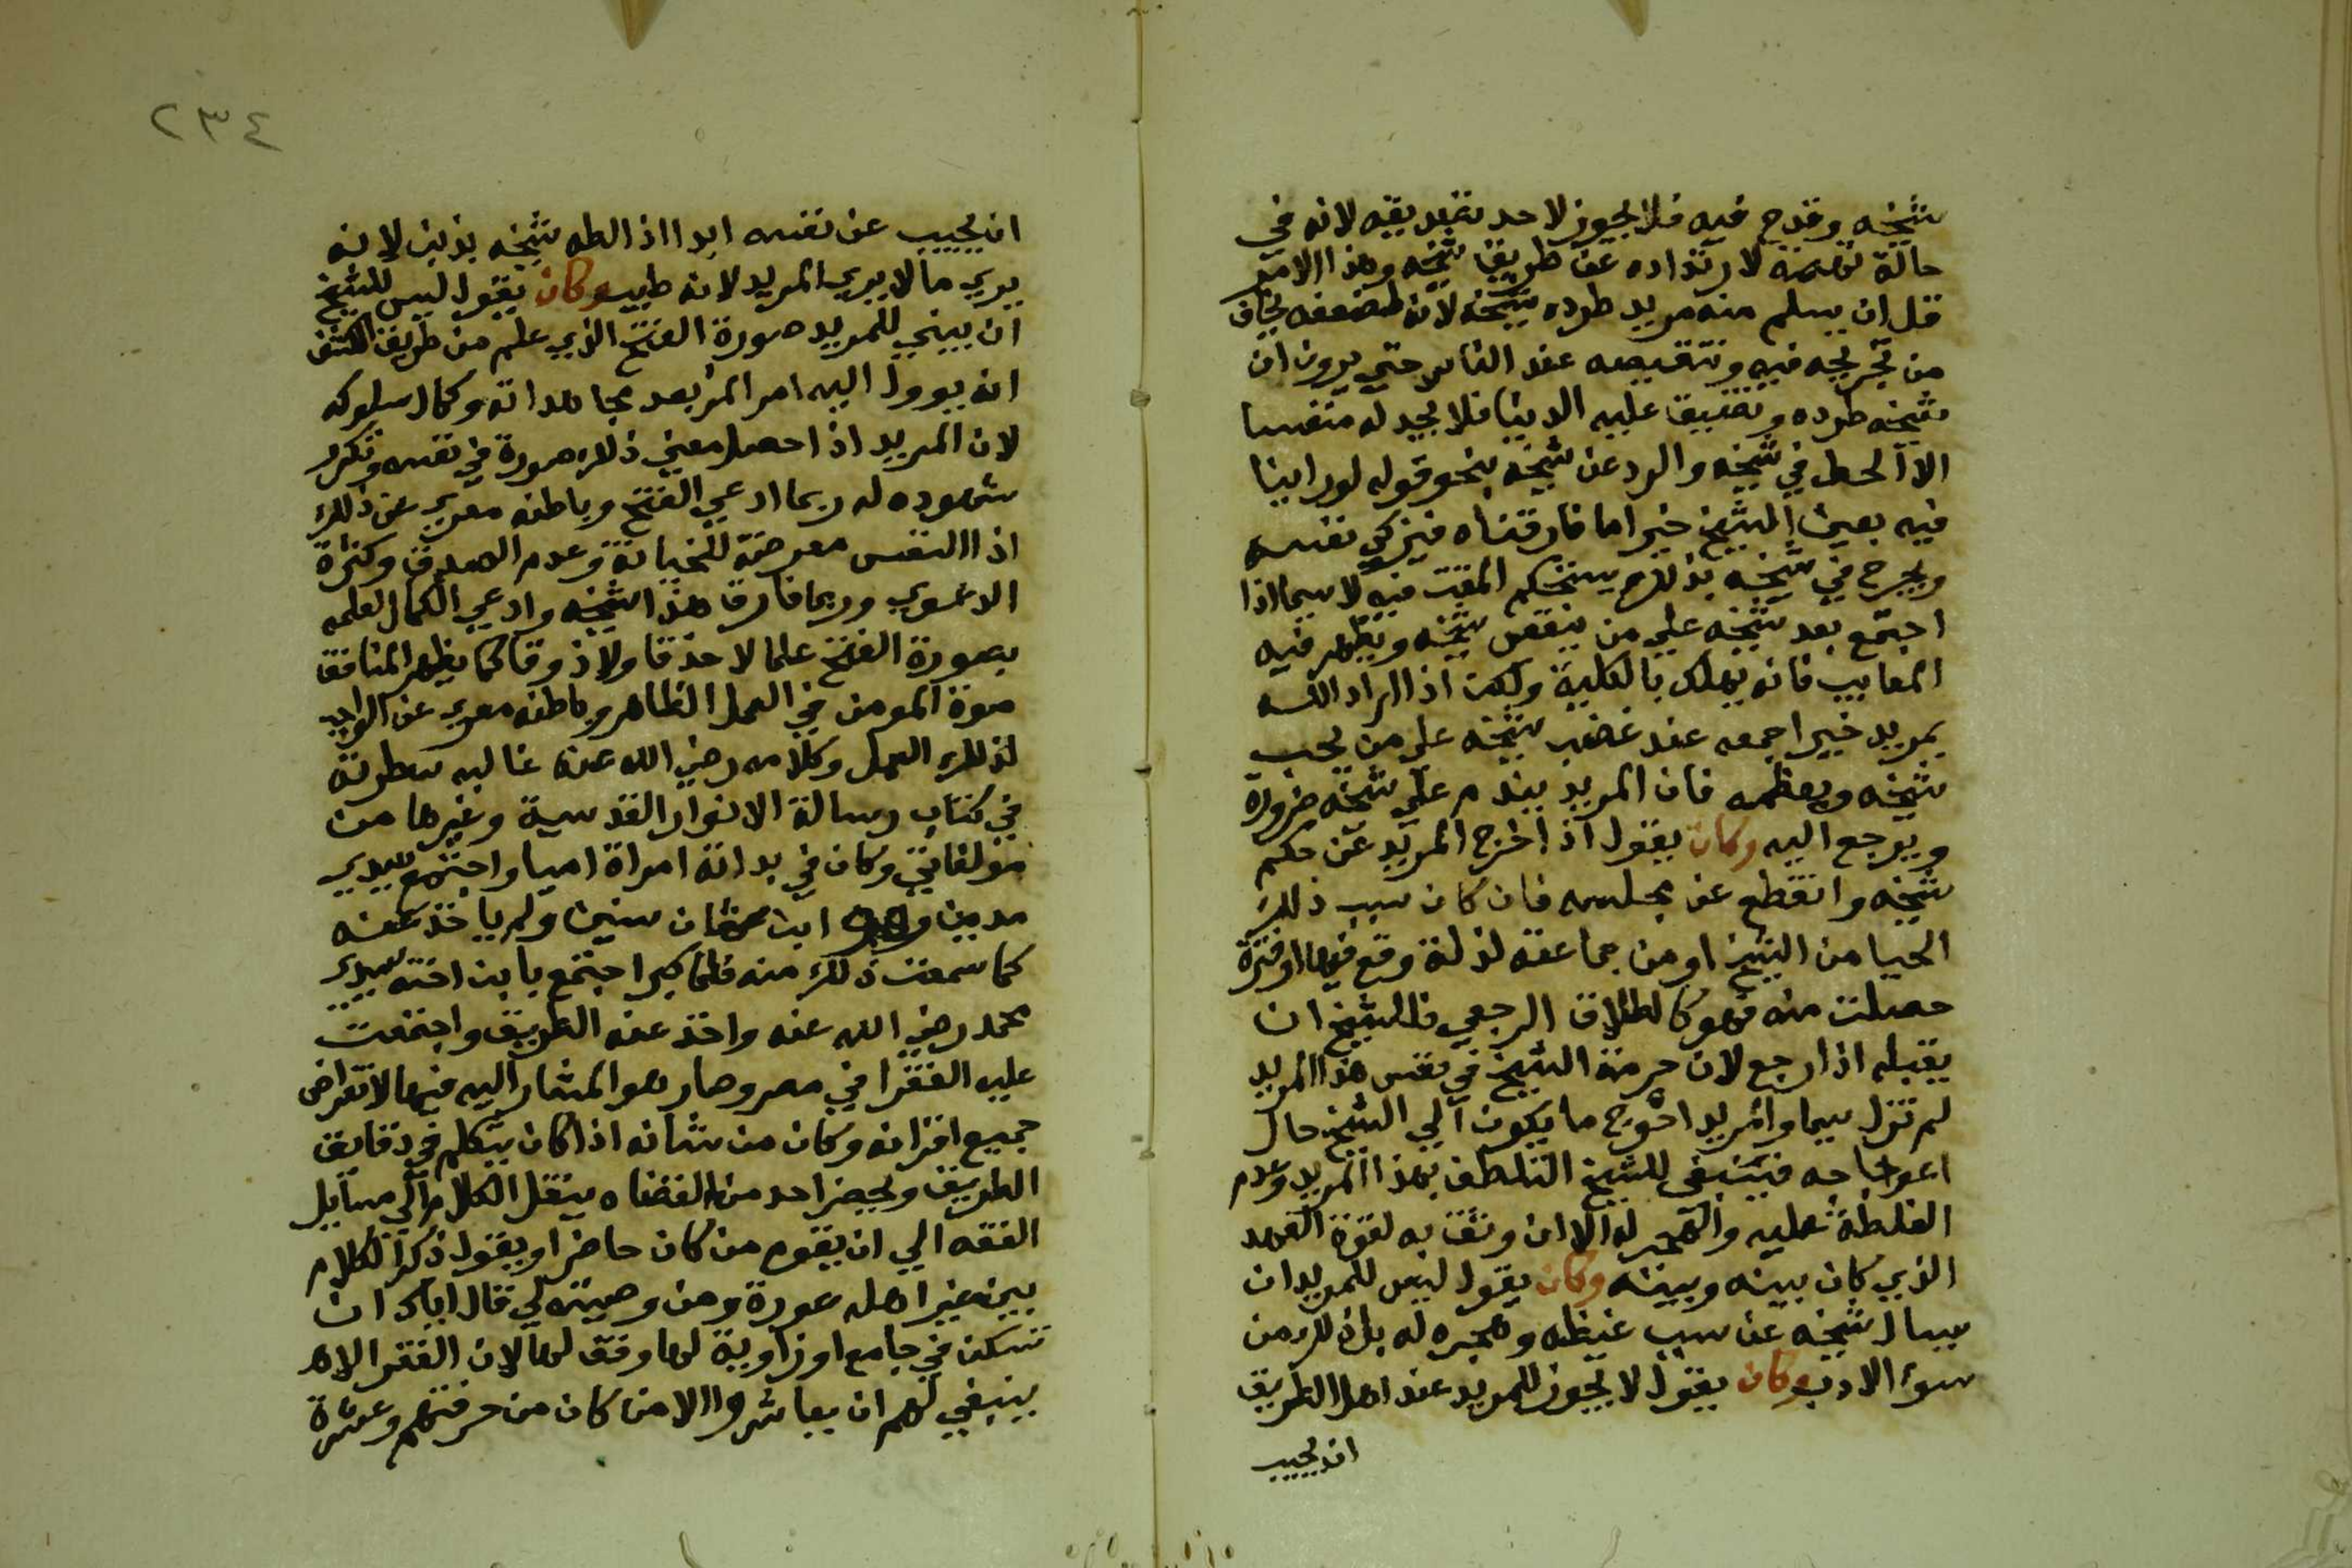 شيخه وقدح فيه فلا يجوز لاحد تصديقه لانه في
حالة تهمة لارتداده عن طريق شيخه وهذا الامر
قل ان يسلم منه مريد طرده شيخه لانه لضعفه يخاف
من تجريحه فيه وتنقيصه عند الناس حتي يرون ان
شيخه طرده وتضييق عليه الدينا فلا يجد له متنفسا
الا الحط في شيخه والرد عن شيخه بنحو قوله لو راينا
فيه يعين الشيخ خيرا ما فارقناه فيزكي نفسه
ويجرح في شيخه بذلك يستحكم المقت فيه لا سيما اذا
اجتمع بعد شيخه علي من ينقص شيخه ويظهر فيه
المعايب فانه يهلك بالكلية ولكن اذا اراد الله
بمريد خيرا جمعه عند غضب شيخه علي من يحب
شيخه ويعظمه فان المريد يندم علي شيخه ضرورة
ويرجع اليه وكان يقول اذا خرج المريد عن حكم
شيخه وانقطع عن مجلسه فان كان سبب ذلك
الحيا من الشيخ او من جماعته لزلة وقع فيها او فترة
حصلت منه فهو كالطلاق الرجعي فللشيخ ان
يقبله اذا رجع لان حرمة الشيخ في نفس هذا المريد
لم تزل سيما والمريد احوج ما يكون الي الشيخ حال
اعوجاجه فينبغي للشيخ التلطف بهذا المريد وعدم
الغلظة عليه والهجر له الا ان وثق به لقوة العهد
الذي كان بينه وبينه وكان يقول ليس للمريد ان
يسال شيخه عن سبب غيظه وهجره له بل ذلك من
سوء الادب وكان يقول لا يجوز للمريد عند اهل الطريق
ان يجيب
٢٣٤
ان يجيب عن نفسه ابدا اذا لطه شيخه بذنب لانه
يري ما لا يري المريد لانه طبيب وكان يقول ليس للشيخ
ان يبني للمريد صورة الفتح الذي علم من طريق الكشف
انه يوول اليه امر المر بعد مجاهداته وكمال سلوكه
لان المريد اذا حصل معني ذلك صورة في نفسه وتكرر
شهوده له ربما ادعي الفتح وباطنه معري عن ذلك
اذ النفس معرضة للخيانة وعدم الصدق وكثرة
الدعوي وربما فارق هذا شيخه وادعي الكمال لعلمه
بصورة الفتح علما لا حذقا ولا ذوقا كما يظهر المنافق
صورة المومن في العمل الظاهر وباطنه معري عن الواجب
لذلك العمل وكلامه رضي الله عنه غالبه سطرته
في كتاب رسالة الانوار القدسية وغيرها من
مولفاتي وكان في بداته امراة اميا واجتمع بسيدي
مدين وهو ابن ثمان سنين ولم ياخذ عنه
كما سمعت ذلك منه فلما كبر اجتمع بابن اخته سيدي
محمد رضي الله عنه واخذ عنه الطريق واجتمعت
عليه الفقرا في مصر وصار هو المشار اليه فيها لانقراض
جميع اقرانه وكان من شانه اذا كان يتكلم في دقايق
الطريق ويحضر احد من القضاه ينقل الكلام الي مسايل
الفقه الي ان يقوم من كان حاضرا ويقول ذكر الكلام
بين غير اهله عورة ومن وصيته لي قال اياك ان
تسكن في جامع او زاوية لها وقف لها لان الفقرا لا
ينبغي لهم ان يعاشروا الا من كان من حرفتهم وعشرة